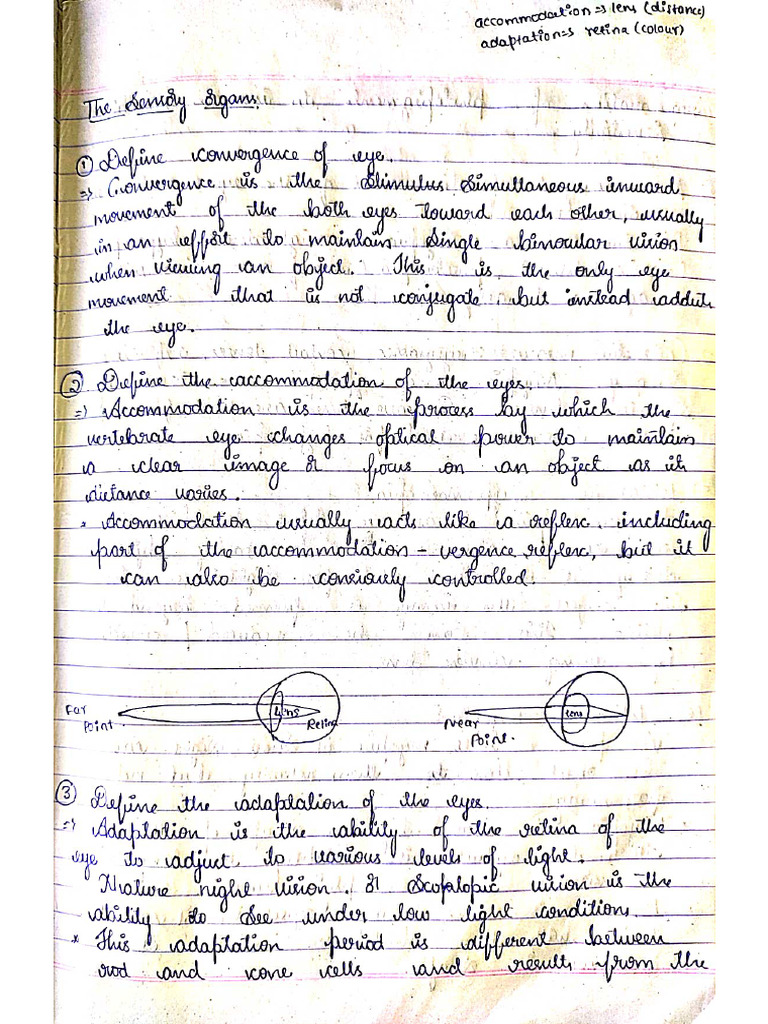 accommodation => lens (distance)
adaptation => retina (colour)
The Sensory organs.
① Define convergence of eye.
=> Convergence is the Stimulus Simultaneous inward
movement of the both eyes toward each other, usually
in an effort to maintain Single binocular vision
when viewing an object. This is the only eye
movement that is not conjugate but instead adducts
the eye.
② Define the accommodation of the eyes.
=> Accommodation is the process by which the
vertebrate eye changes optical power to maintain
a clear image & focus on an object as its
distance varies.
* Accommodation usually acts like a reflex. including
part of the accommodation - vergence reflex, but it
can also be consiously controlled.
Far
Point.
Lens
Retina
Near
Point.
lens
③ Define the adaptation of the eyes.
=> Adaptation is the ability of the retina of the
eye to adjust to various levels of light.
Nature night vision. & Scopalopic vision is the
ability to See under low light conditions.
* This adaptation period is different between
rod and cone cells and results from the